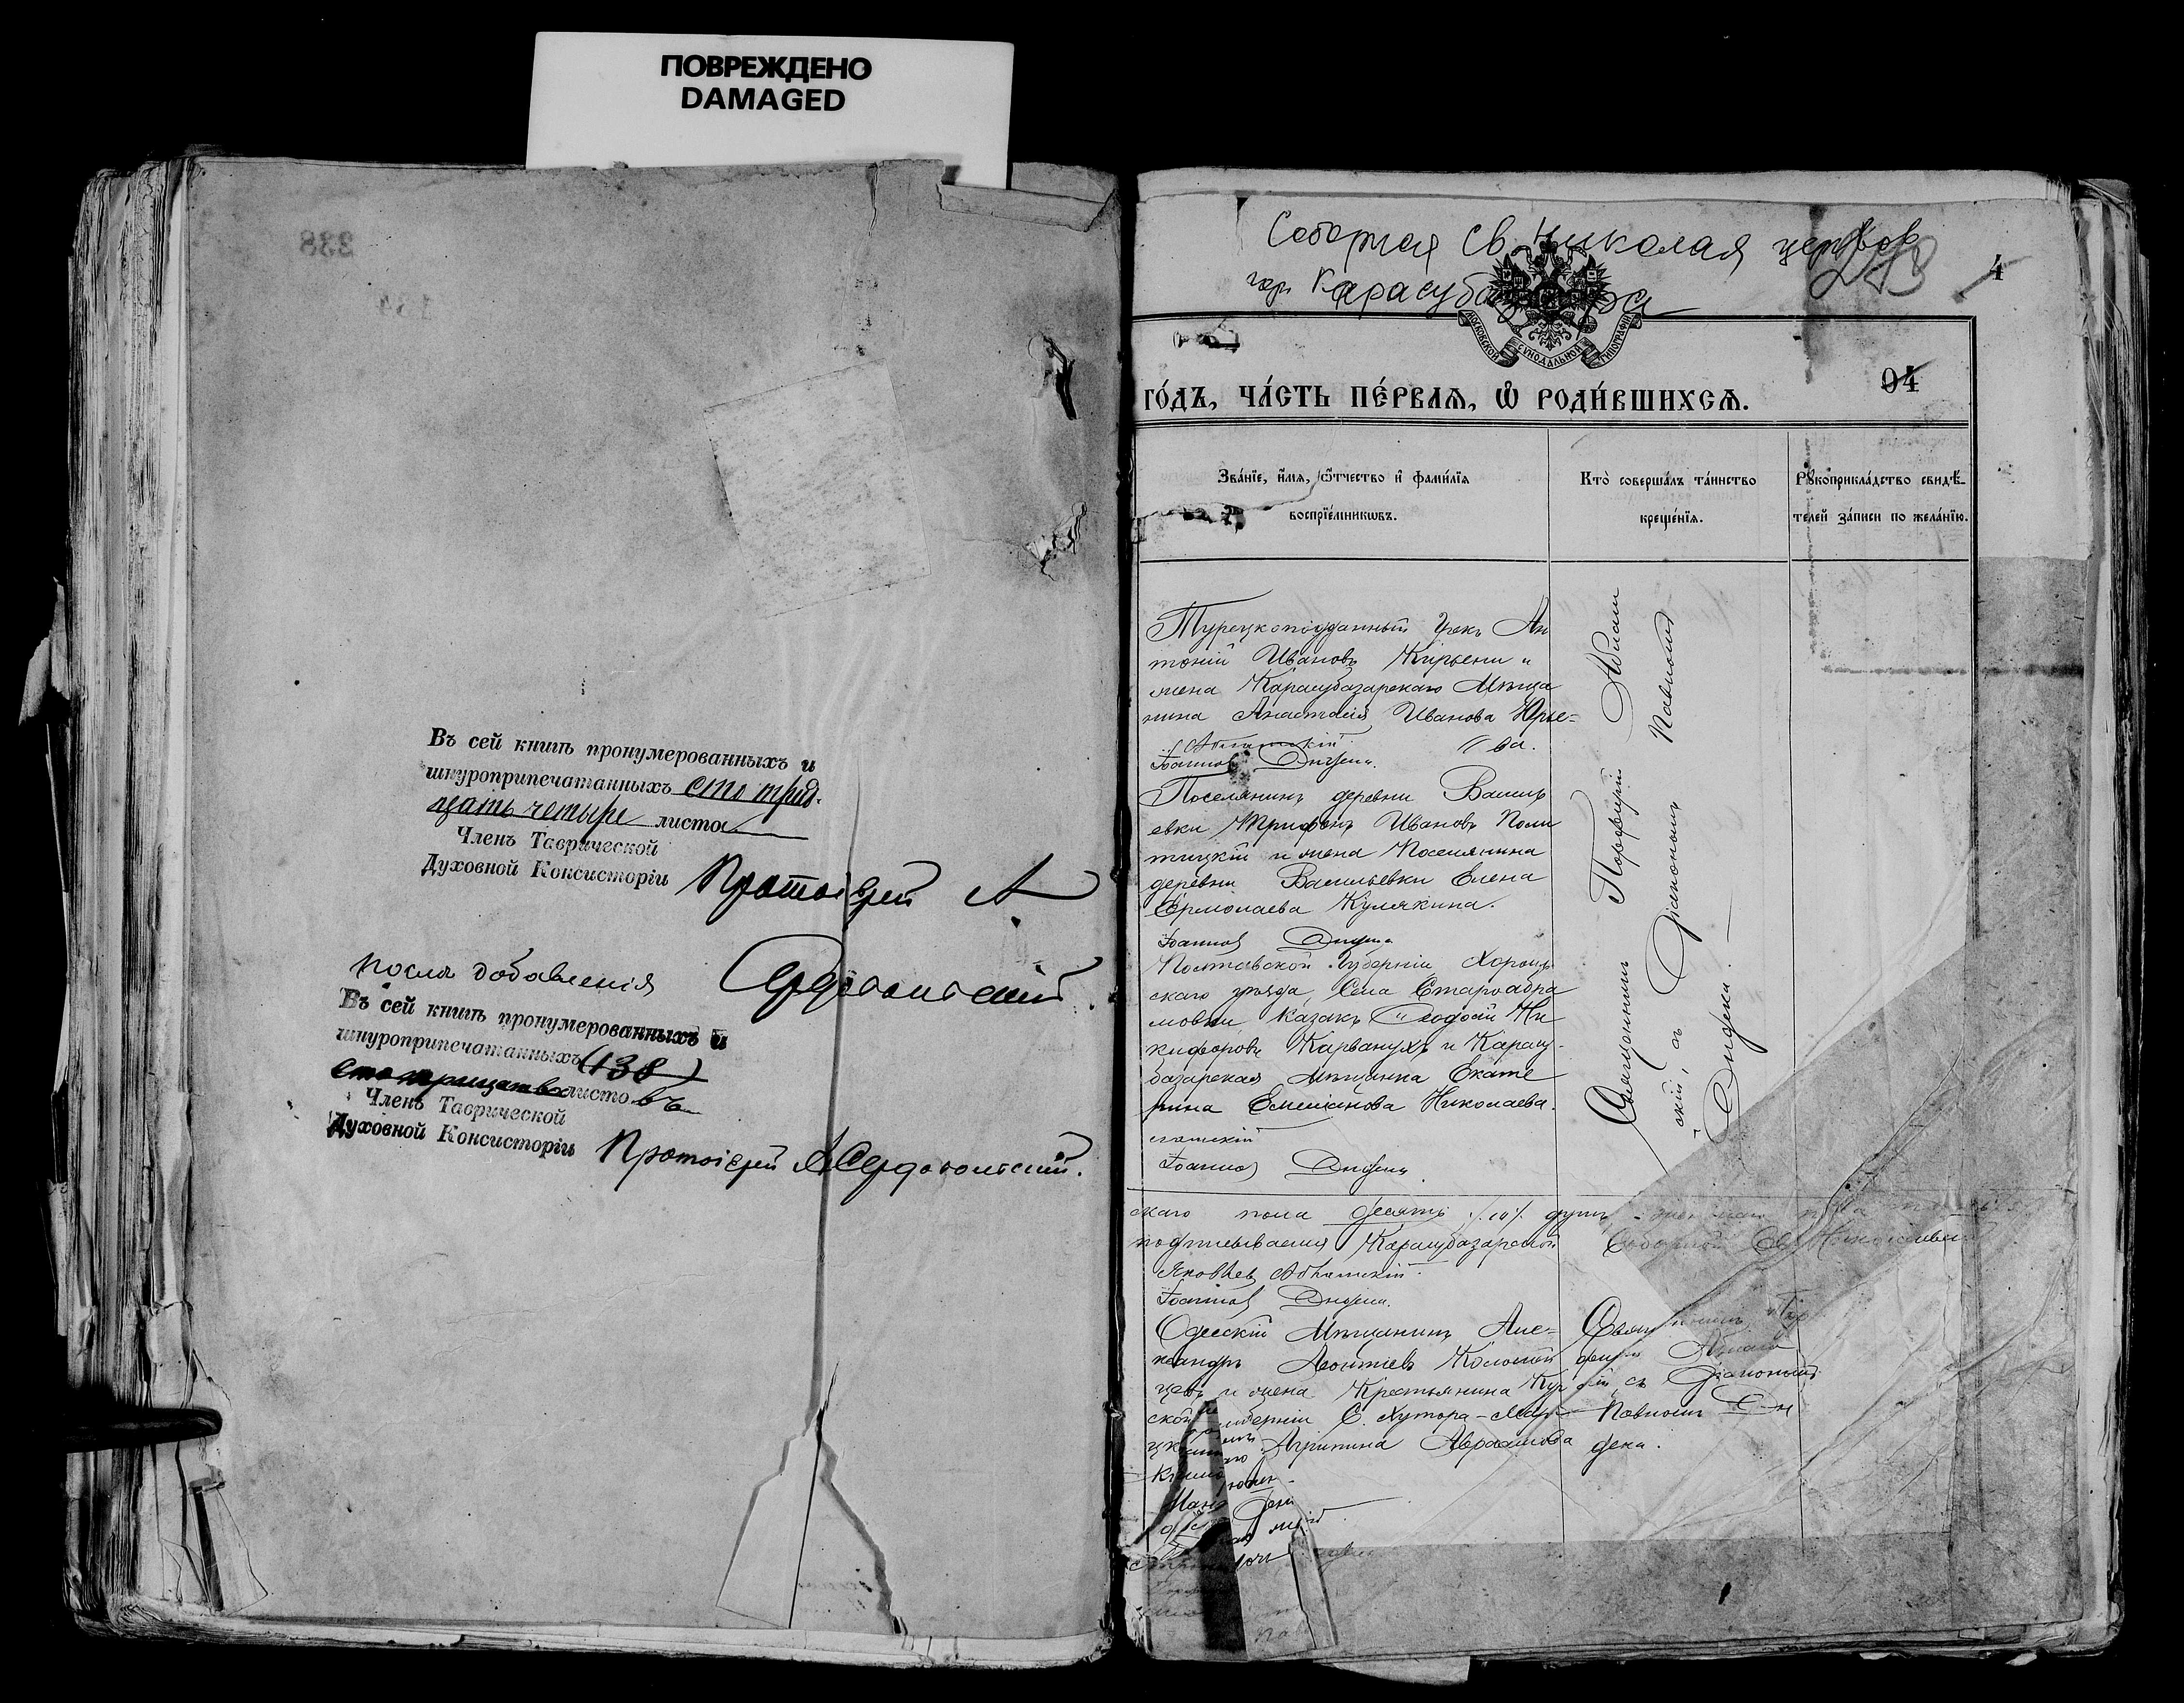 ПОВРЕЖДЕНО
DAMAGED
338
134
Въ сей книгѣ пронумерованныхъ и
шнуроприпечатанныхъ сто трид-
цать четыре листа
Членъ Таврической
Духовной Консисторіи Протоіерей А
Сердобольскій
послѣ добавленія
Въ сей книгѣ пронумерованныхъ и
шнуроприпечатанныхъ (138)
листовъ
Членъ Таврической
Духовной Консисторіи Протоіерей А Сердобольскій.
Соборная Св. Николая церковь
гор. Карасубазара
4
МОСКОВСКОЙ СѴНОДАЛЬНОЙ ТИПОГРАФІИ
04
го́дъ, ча́сть пе́рваѧ, ѡ҆ роди́вшихсѧ.
Зва́нїе, и҆́мѧ, ѻ҆́тчество и҆ фами́лїѧ
воспрїе́мникѡвъ.
Кто̀ соверша́лъ та́инство
креще́нїѧ.
Рꙋкоприкла́дство свидѣ́-
телей за́писи по жела́нїю.
Турецкоподданный Грекъ Ан
тоній Ивановъ Кирьени и
жена Карасубазарскаго Мѣща
нина Анастасія Иванова Юрье-
ва.
Іоанновъ Диденка.
Поселянинъ деревни Василь
евки Трифонъ Ивановъ Поли
тицкій и жена Поселянина
деревни Васильевки Елена
Ермолаева Кулякина.
Іоанновъ Диденка
Полтавской Губерніи, Хороль
скаго уѣзда, Села Староавра
мовки, Казакъ Ѳеодосій Ни
кифоровъ Карванухъ и Карасу-
базарская Мѣщанка Екате
рина Емельянова Николаева.
Іоанновъ Диденка
Священникъ Порфирій Абламскій, съ Діакономъ Павломъ
Диденка.
скаго пола десять /.10/. душъ
подписываемся Карасубазарской Соборной Св. Николаевской
Яковлевъ Абламскій.
Іоанновъ Диденка.
Одесскій Мѣщанинъ Але-
ксандръ Леонтіевъ Коломій
цевъ и жена Крестьянина Кур
ской губерніи С. Хутора-
Агрипина Авраамова
Священникъ Пор
фирій Аблам
скій, съ Діакономъ
Павломъ Ди
денка.